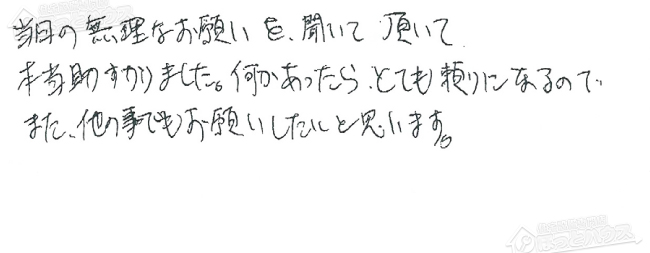 当日の無理なお願いを、聞いて頂いて
本当助すかりました。何かあったら、とても頼りになるので
また、他の事でもお願いしたいと思います。